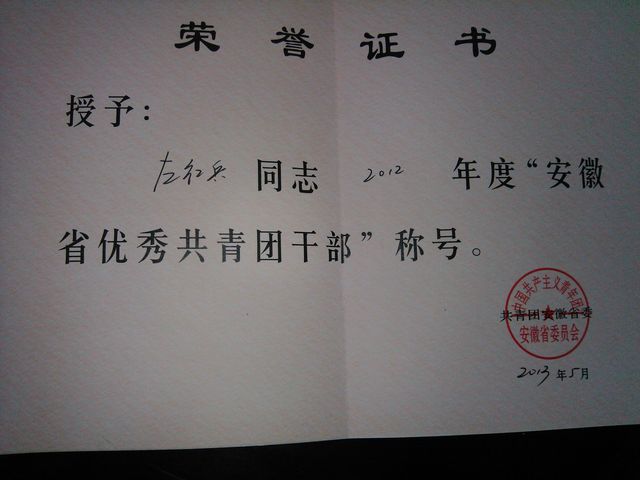 荣誉证书
授予：
左红兵 同志 2012 年度“安徽
省优秀共青团干部”称号。
中国共产主义青年团
共青团安徽省委
安徽省委员会
2013 年 5 月